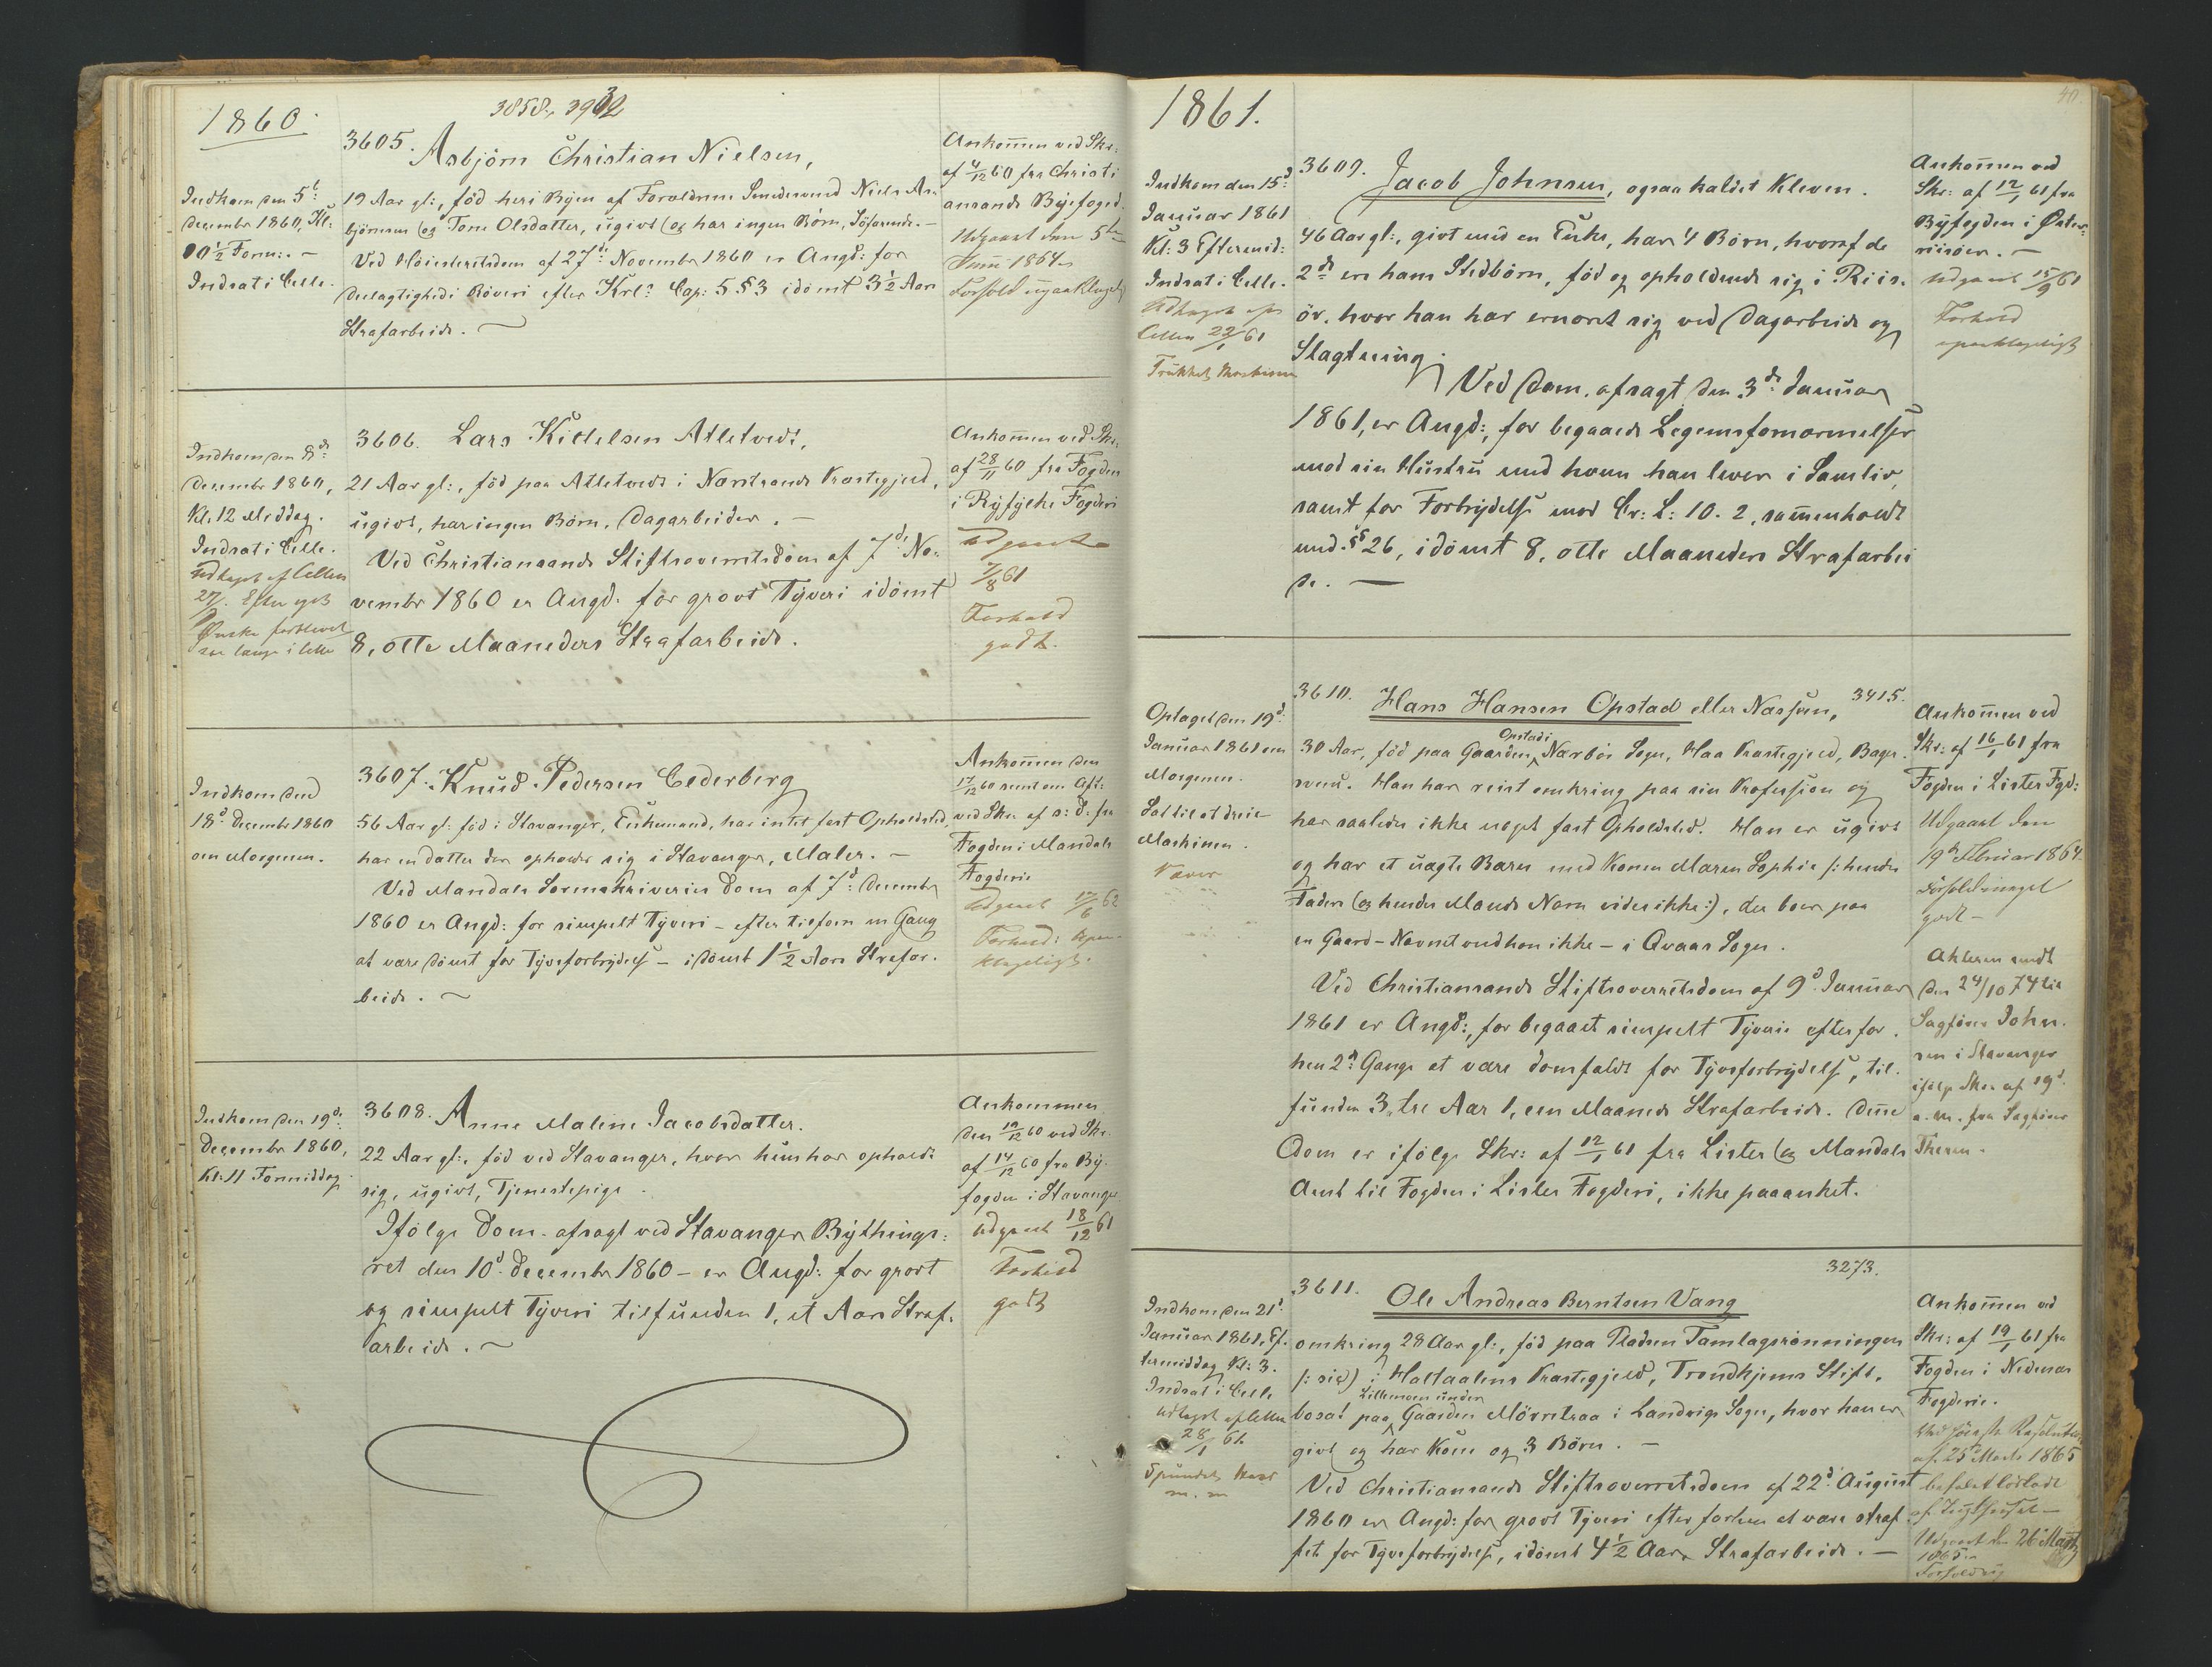 1860.
3858, 3932
Indkom den 5t:
December 1860, Kl:
10½ Form: –
Indsat i Celle.
3605. Asbjörn Christian Nielsen,
19 Aar gl:, föd heri Byen af Foraldrene Smedesvend Niels As-
björnsen og Tone Olsdatter, ugivt og har ingen Börn, Söfarende. –
Ved Höiesteretsdom af 27d: November 1860 er Angd: for
Deelagtighed i Röveri efter Krl: Cap: 5 § 3 idömt 3½ Aars
Strafarbeide. –
Ankommen ved Skr:
af 4/12 60 fra Christi
ansands Byefoged.
Udgaaet den 5te
Juni 1864.
Forhold upaaklageligt
Indkom den 8d:
December 1860,
Kl. 12 Middag.
Indsat i Celle.
Udtaget af Cellen
27/. Efter eget
Önske forblevet
saa længe i Celle
3606. Lars Kittelsen Atletvedt,
21 Aar gl:, föd paa Atletvedt i Nærstrands Præstegjeld,
ugivt, har ingen Börn, Dagarbeider. –
Ved Christiansands Stiftsoverretsdom af 7d: No-
vember 1860 er Angd: for grovt Tyveri idömt
8, otte Maaneders Strafarbeide.
Ankommen ved Skr:
af 28/11 60 fra Fogden
i Ryfylke Fogderi
Udgaaet
7/8 61
Forhold
godt.
Indkom den
18d: December 1860
om Morgenen.
3607. Knud Pedersen Cederberg
56 Aar gl: föd i Stavanger, Enkemand, har intet fast Opholdsted,
har en Datter der opholder sig i Stavanger, Maler. –
Ved Mandals Sorenskriveries Dom af 7d: December
1860 er Angd: for simpelt Tyveri – efter tilforn en Gang
at være dömt for Tyvsforbrydelse – idömt 1½ Aars Strafar-
beide. –
Ankommen den
17/12 60 sent om Aft:
ved Skr: af s: D: fra
Fogden i Mandals
Fogderie
Udgaaet 17/6 62
Forhold: upaa-
klageligt.
Indkom den 19d:
December 1860,
Kl: 11 Formiddag
3608. Anne Maline Jacobsdatter.
22 Aar gl:, föd ved Stavanger, hvor hun har opholdt
sig, ugivt, Tjenestepige.
Ifölge Dom afsagt ved Stavanger Bythings-
ret den 10d: December 1860 – er Angd: for grovt
og simpelt Tyveri tilfunden 1, et Aars Straf-
arbeide. –
Ankommen
den 19/12 60 ved Skr.
af 14/12 60 fra By-
fogden i Stavanger
Udgaaet 18/12 61
Forhold
godt
1861.
40.
Indkom den 15d
Januar 1861
Kl: 3 Eftermid:
Indsat i Celle.
Udtaget af
Cellen 22/1 61
Trukket Maskinen
3609. Jacob Johnsen, ogsaa kaldet Kleven.
46 Aar gl:, givt med en Enke, har 4 Börn, hvoraf de
2de ere hans Stedbörn, föd og opholdende sig i Riis-
ör, hvor han har ernæret sig ved Dagarbeide og
Slagtning.
Ved Dom, afsagt den 3de Januar
1861, er Angd:, for begaaede Legemsfornærmelser
mod sin Hustru med hvem han lever i Samliv,
samt for Forbrydelse mod Cr: L: 10. 2, sammenholdt
med §§ 26, idömt 8, otte Maaneders Strafarbei
de. –
Ankommen ved
Skr: af 12/1 61 fra
Byfogden i Öster-
riisöer. –
Udgaaet 15/9 61
Forhold
upaaklageligt
Optaget den 19d:
Januar 1861 om
Morgenen.
Sat til at dreie
Maskinen.
Væver
3610. Hans Hansen Opstad eller Nassjun, 3415.
30 Aar, föd paa Gaarden Opstad i Nærbö Sogn, Haa Præstegjeld, Bager-
svend. Han har reist omkring paa sin Profession og
har saaledes ikke noget fast Opholdsted. Han er ugivt
og har et uægte Barn med Konen Maren Sophie /: hendes
Faders og hendes Mands Navn vides ikke :/, der boer paa
en Gaard – Navnet veed han ikke – i Qvaas Sogn.
Ved Christiansands Stiftsoverretsdom af 9d: Januar
1861 er Angd:, for begaaet simpelt Tyverie efter for-
hen 2d: Gange at være domfældt for Tyvsforbrydelse, til-
funden 3, tre Aar 1, een Maaneds Strafarbeide. Denne
Dom er ifölge Skr: af 12/1 61 fra Lister og Mandals
Amt til Fogden i Lister Fogderi, ikke paaanket.
Ankommen ved
Skr: af 16/1 61 fra
Fogden i Lister Fgd:
Udgaaet den
19de Februar 1864.
Forhold meget
godt –
Akterne sendt
den 24/10 74 til
Sagförer John-
sen i Stavanger
ifölge Skr: af 19d.
a. M. fra Sagförer
Indkom den 21d:
Januar 1861, Ef-
termiddag Kl: 3.
Indsat i Celle
Udtaget af Cellen
28/1 61
Spundet
m. m
3273.
3611. Ole Andreas Berntsen Vang
omkring 28 Aar gl:, föd paa Pladsen Tamlagsrönningen
/: sic) i Haltaalens Præstegjeld, Trondhjems Stift,
bosat paa Lillemoen under Gaarden Mövretraa i Landvigs Sogn, hvor han er
givt og har Kone og 3 Börn. –
Ved Christiansands Stiftsoverretsdom af 22d: August
1860 er Angd: for grovt Tyveri efter forhen at være straf-
fet for Tyvsforbrydelse, idömt 4½ Aars Strafarbeide. –
Ankommen ved
Skr: af 19/1 61 fra
Fogden i Nedenæs
Fogderie.
Ved Resolution
af 25de Marts 1865
befalet lösladt
Udgaaet den 26 Marts
1865
Forhold